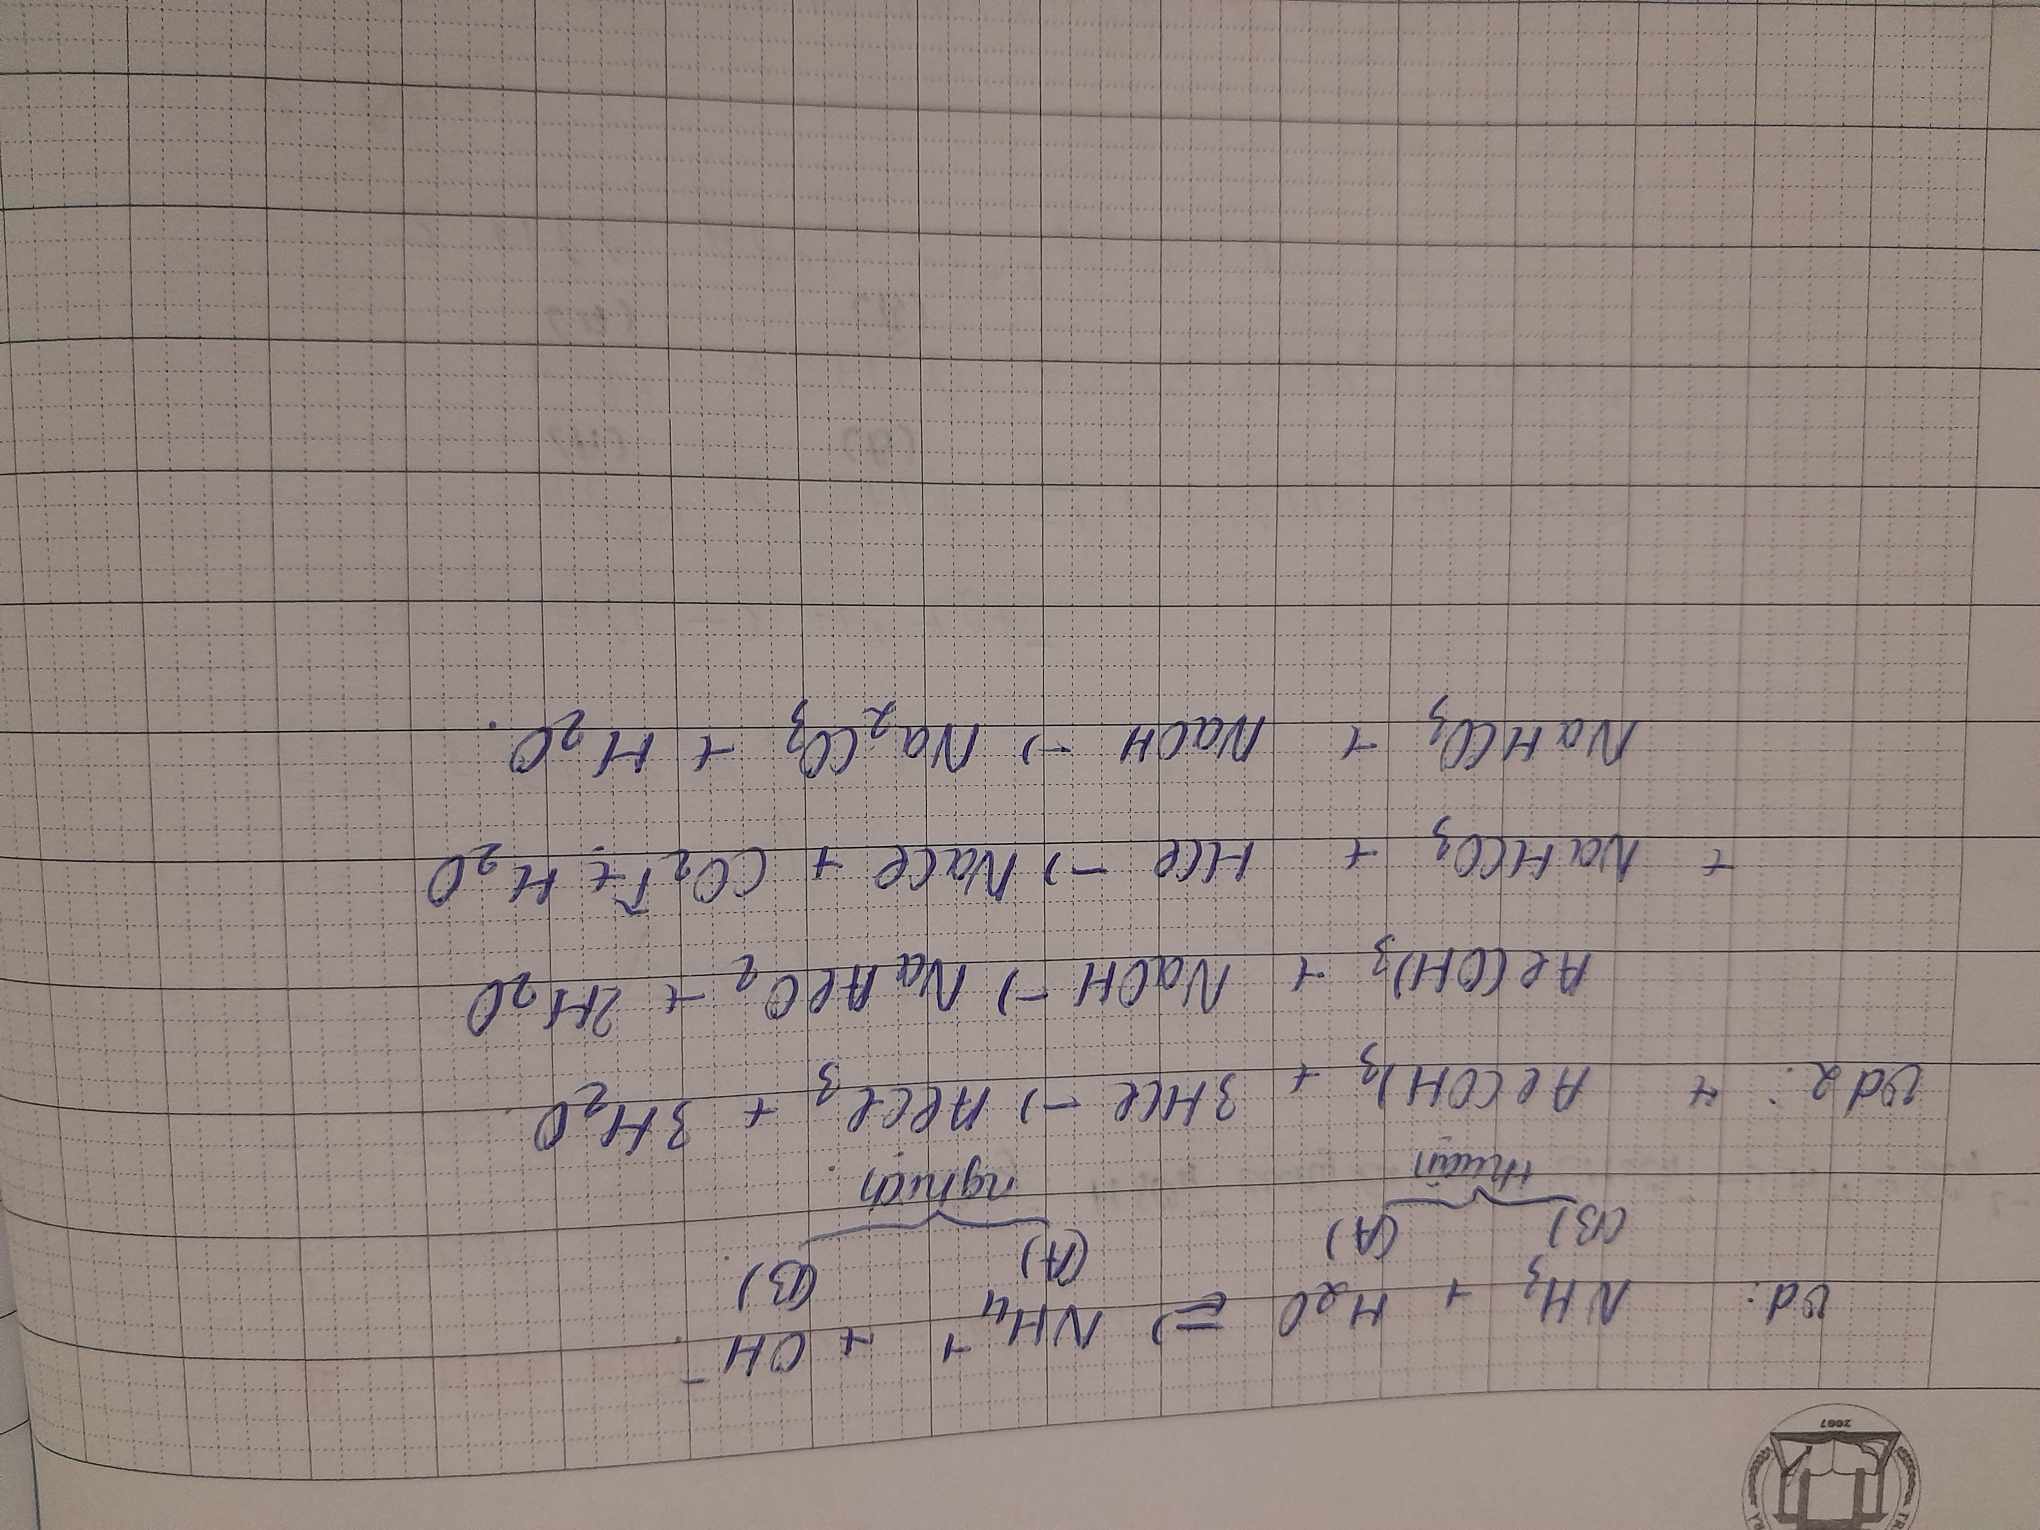 2007
Vd: NH₃ + H₂O ⇌ NH₄⁺ + OH⁻.
(B) (A) (A) (B).
thuận nghịch.
Vd 2: + Al(OH)₃ + 3HCl → AlCl₃ + 3H₂O.
Al(OH)₃ + NaOH → NaAlO₂ + 2H₂O
+ NaHCO₃ + HCl → NaCl + CO₂↑ + H₂O
NaHCO₃ + NaOH → Na₂CO₃ + H₂O.